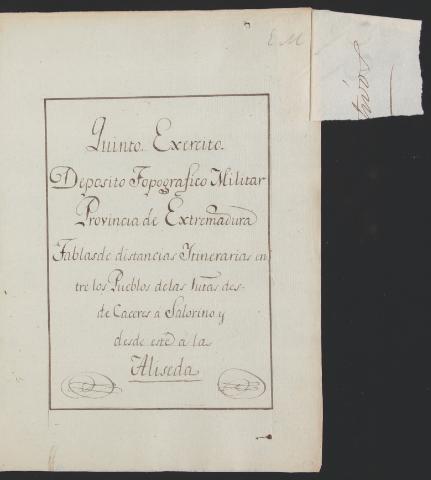 E. M
Quinto. Exercito.
Deposito Topografico Militar
Provincia de Extremadura
Tablas de distancias Itinerarias en
tre los Pueblos de las rutas des-
de Caceres a Salorino y
desde este a la
Aliseda